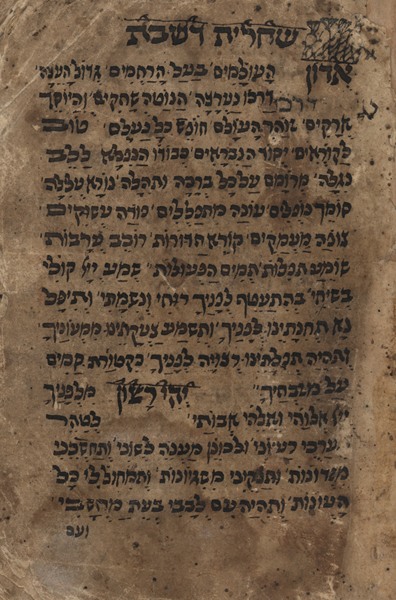 שחרית דשבת
אדון העולמים בעל הרחמים גדול העצה
דרכו נערצה הנוטה שחקים והיוסד
ארקים זוהר העולם חופש כל נעלם טוב
לקוראים יקוד הנבראים כבודו
נגלה מרומם על כל ברכה ותהלה נורא עלילה
סומך נופלים עונה מתפללים פודה עשוקים
צופה מעמקים קורא הדורות רוכב ערבות
שומע תפלות תמים הפעולות שמע ייי קולי
בשיחי בהתעטף לפניך רוחי ונשמתי ותפל
נא תחנתינו לפניך ותשמע צעקתינו ממעוניך
ותהיה תפלתינו רצויה לפניך כקטורת קמים
על מזבחיך יהי רצון מלפניך
ייי אלוהי ואלהי אבותי לטהר
רעיוני ולכונן מענה לשוני
ותנקיני משגיונות ותמחול לי כל
העונות ותהיה עם לבבי בעת
ועם